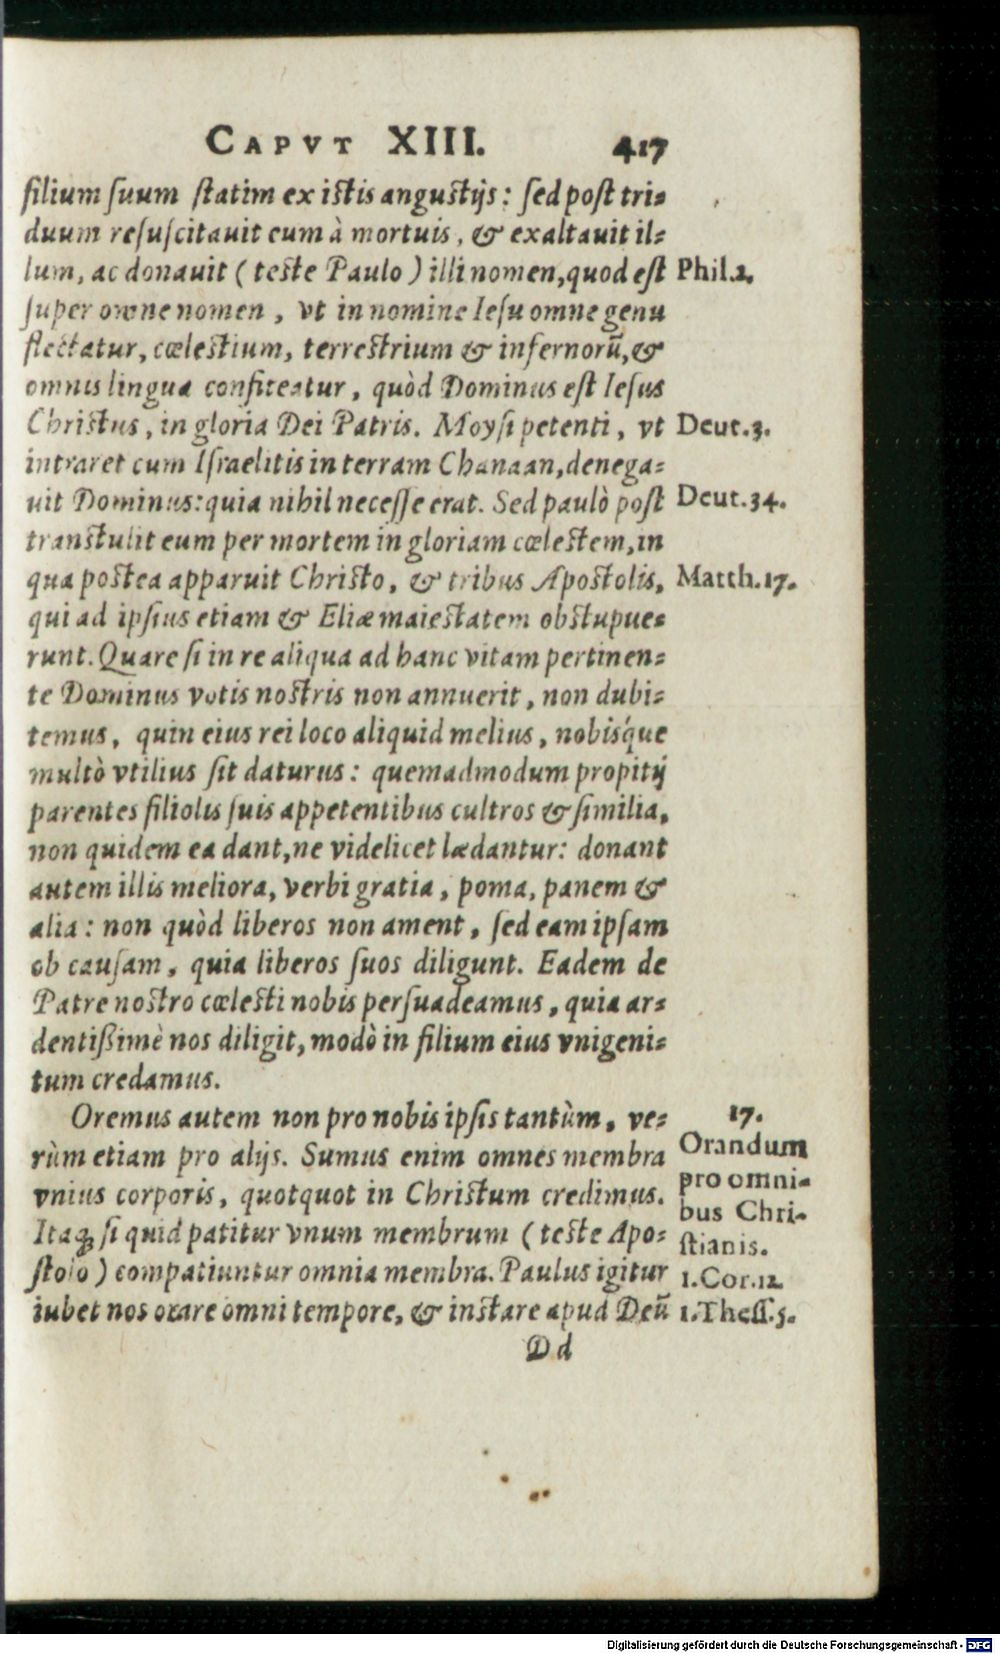 CAPVT XIII. 417
filium ſuum ſtatim ex iſtis anguſtijs: ſed poſt tri-
duum reſuſcitauit eum à mortuis, & exaltauit il-
lum, ac donauit (teſte Paulo) illi nomen, quod eſt
Phil.2.
ſuper omne nomen, vt in nomine Ieſu omne genu
flectatur, cœleſtium, terreſtrium & infernorū, &
omnis lingua confiteatur, quòd Dominus eſt Ieſus
Chriſtus, in gloria Dei Patris. Moyſi petenti, vt
Deut.3.
intraret cum Iſraelitis in terram Chanaan, denega-
uit Dominus: quia nihil neceſſe erat. Sed paulò poſt
Deut.34.
tranſtulit eum per mortem in gloriam cœleſtem, in
qua poſtea apparuit Chriſto, & tribus Apoſtolis,
Matth.17.
qui ad ipſius etiam & Eliæ maieſtatem obſtupue-
runt. Quare ſi in re aliqua ad hanc vitam pertinen-
te Dominus votis noſtris non annuerit, non dubi-
temus, quin eius rei loco aliquid melius, nobisq́ue
multò vtilius ſit daturus: quemadmodum propitij
parentes filiolis ſuis appetentibus cultros & ſimilia,
non quidem ea dant, ne videlicet lædantur: donant
autem illis meliora, verbi gratia, poma, panem &
alia: non quòd liberos non ament, ſed eam ipſam
ob cauſam, quia liberos ſuos diligunt. Eadem de
Patre noſtro cœleſti nobis perſuadeamus, quia ar-
dentißimè nos diligit, modò in filium eius vnigeni-
tum credamus.
Oremus autem non pro nobis ipſis tantùm, ve-
rùm etiam pro alijs. Sumus enim omnes membra
vnius corporis, quotquot in Chriſtum credimus.
Itaq; ſi quid patitur vnum membrum (teſte Apo-
ſtolo) compatiuntur omnia membra. Paulus igitur
iubet nos orare omni tempore, & inſtare apud Deū
17.
Orandum
pro omni-
bus Chri-
ſtianis.
1.Cor.12
1.Theſſ.5.
Dd
Digitalisierung gefördert durch die Deutsche Forschungsgemeinschaft - DFG